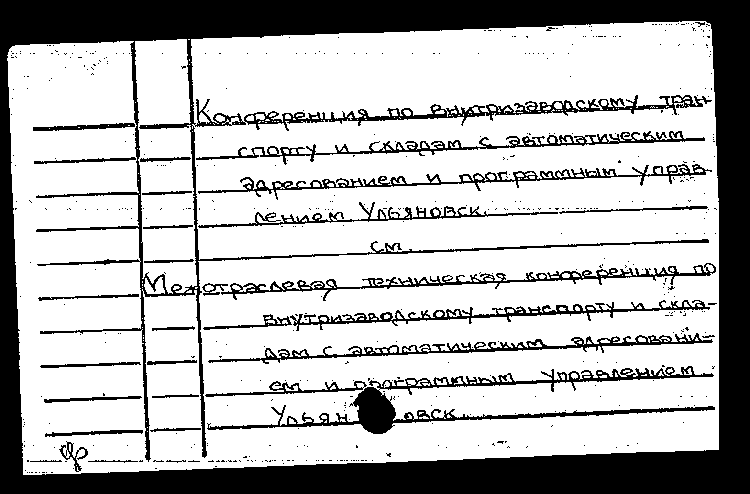 Конференция по внутризаводскому тран-
спорту и складам с автоматическим
адресованием и программным управ-
лением Ульяновск.
см.
Межотраслевая техническая конференция по
внутризаводскому транспорту и скла-
дам с автоматическим адресовани-
ем и программным управлением.
Ульяновск.